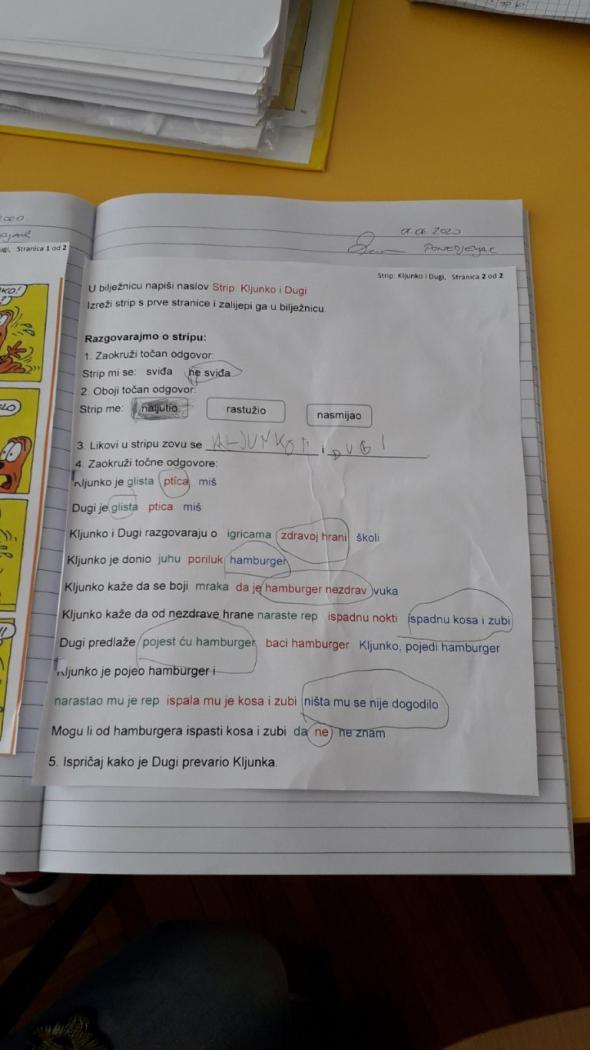 2020
Stranica 1 od 2
2020
PONEDJELJAK
Strip: Kljunko i Dugi, Stranica 2 od 2
U bilježnicu napiši naslov Strip: Kljunko i Dugi
Izreži strip s prve stranice i zalijepi ga u bilježnicu.
Razgovarajmo o stripu:
1. Zaokruži točan odgovor:
Strip mi se: sviđa ne sviđa
2. Oboji točan odgovor:
Strip me: naljutio rastužio nasmijao
3. Likovi u stripu zovu se KLJUNKO I DUGI
4. Zaokruži točne odgovore:
Kljunko je glista ptica miš
Dugi je glista ptica miš
Kljunko i Dugi razgovaraju o igricama zdravoj hrani školi
Kljunko je donio juhu poriluk hamburger
Kljunko kaže da se boji mraka da je hamburger nezdrav vuka
Kljunko kaže da od nezdrave hrane naraste rep ispadnu nokti ispadnu kosa i zubi
Dugi predlaže pojest ću hamburger baci hamburger Kljunko, pojedi hamburger
Kljunko je pojeo hamburger i
narastao mu je rep ispala mu je kosa i zubi ništa mu se nije dogodilo
Mogu li od hamburgera ispasti kosa i zubi da ne ne znam
5. Ispričaj kako je Dugi prevario Kljunka.